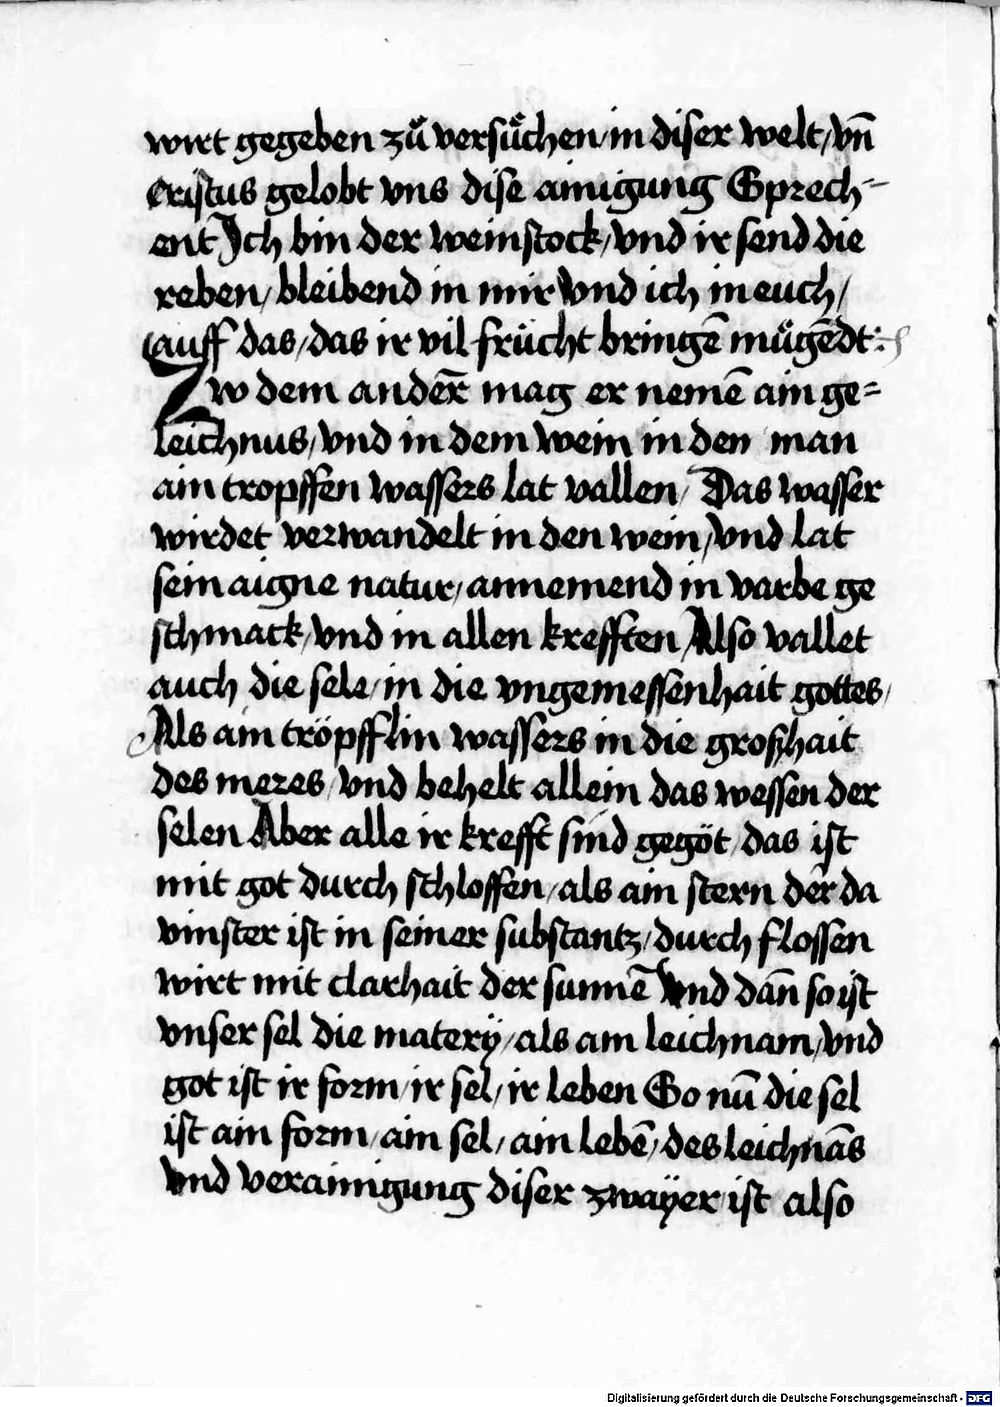 wirt gegeben zů versůchen/in diser welt/vn̄
Cristus gelobt vns dise ainigung Sprech-
ent Ich bin der weinstock/vnd ir send die
reben/bleibend in mir vnd ich in euch/
auff das/das ir vil frücht bringē mügēdt:
Zw dem anderm̄ mag er nemē ain ge=
leichnus/vnd in dem wein in den man
ain tropffen wassers lat vallen/Das wasser
wirdet verwandelt in den wein/vnd lat
sein aigne natur/annemend in varbe ge
schmack/vnd in allen krefften/Also vallet
auch die sele/in die vngemessenhait gottes/
Als ain tröpfflin wassers in die großhait
des meres/vnd behelt allein das wessen der
selen Aber alle ir krefft sind gegöt/das ist
mit got durch schlossen/als ain stern der da
vinster ist in seiner substantz/durch flossen
wirt mit clarhait der sunnē Vnd dan̄ so ist
vnser sel die matery/als am leichnam/vnd
got ist ir form/ir sel/ir leben So nū die sel
ist ain form/ain sel/ain lebē/des leichnās
vnd verainigung diser zwayer ist also
Digitalisierung gefördert durch die Deutsche Forschungsgemeinschaft - DFG